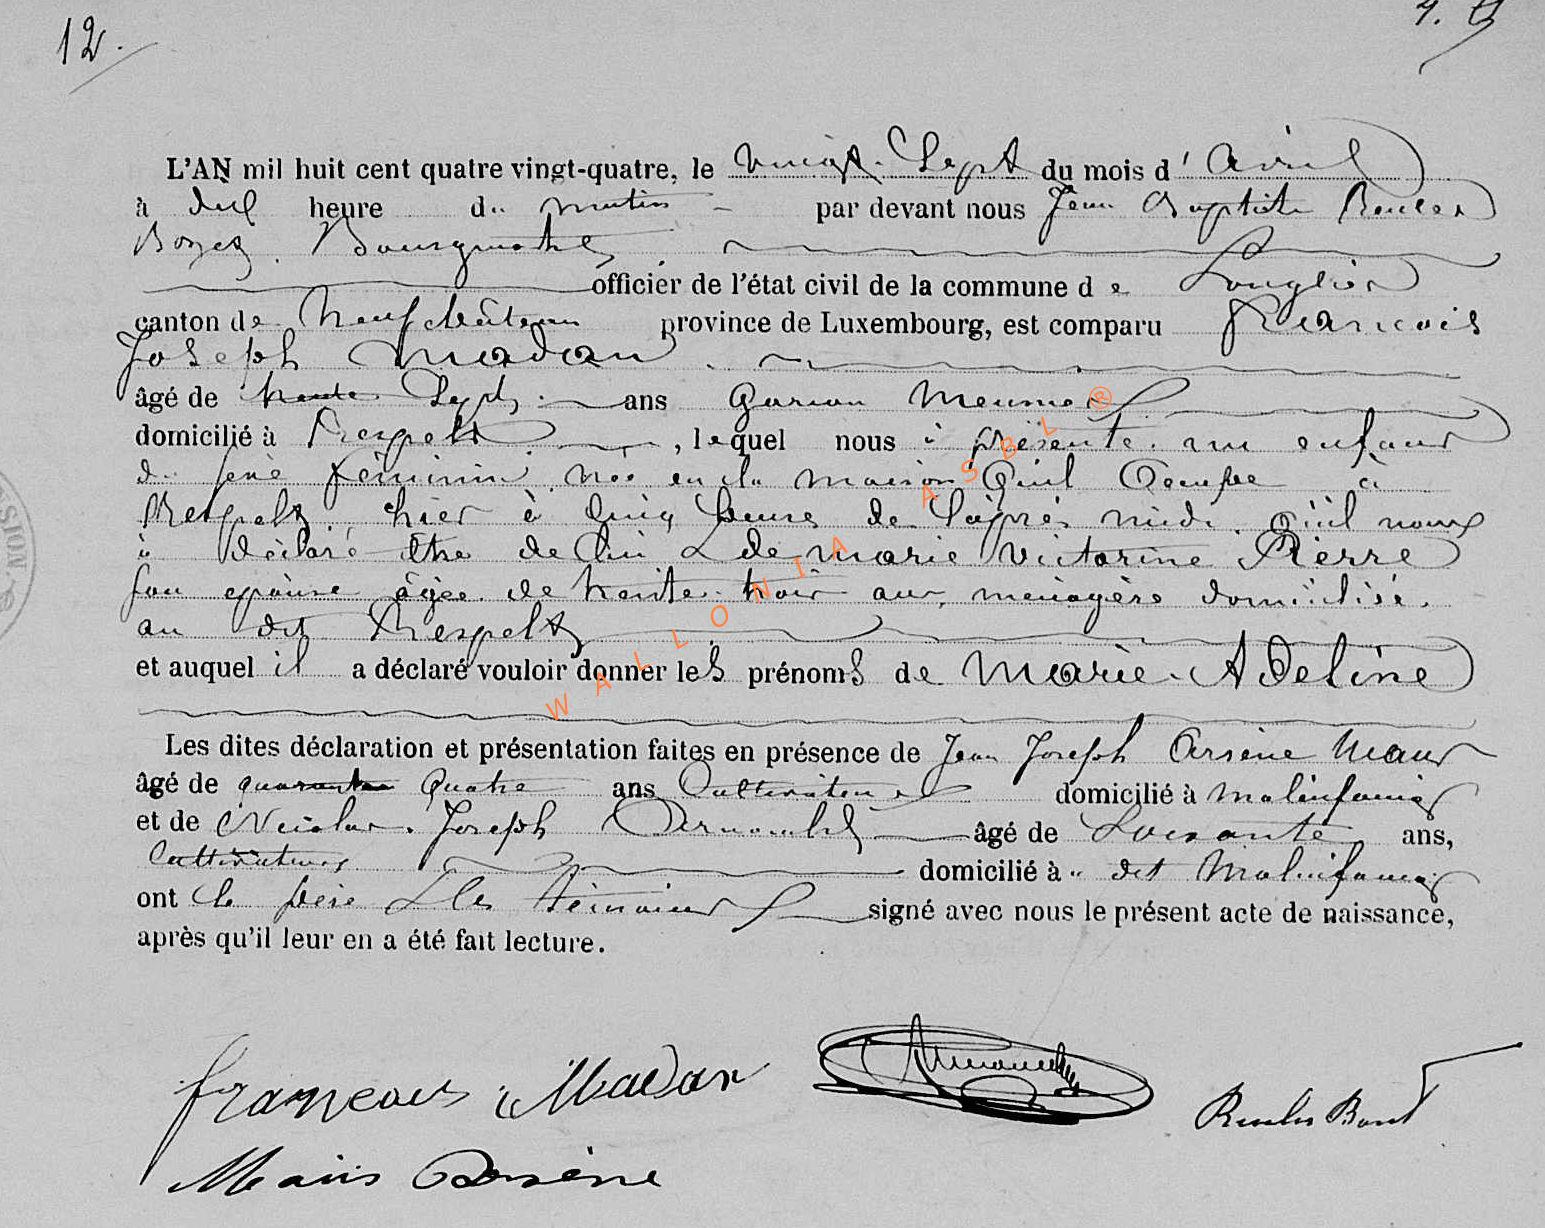 12.
L'AN mil huit cent quatre vingt-quatre, le vingt Sept du mois d' Avril
à dix heure du matin par devant nous Jean Baptiste
Bourgmestre
officier de l'état civil de la commune de Longlier
canton de Neufchâteau province de Luxembourg, est comparu Francois
Joseph Madan
âgé de trente Sept ans Garcon Meunier
domicilié à Respelt, lequel nous à présente un enfant
du sexe féminin, née en la maison Qu'il Occupe à
Respelt, hier à cinq heures de l'après midi. qu'il nous
à déclaré être de lui & de marie Victorine Pierre
son epouse âgée de trente trois ans, ménagère domiciliée
au dit Respelt
et auquel il a déclaré vouloir donner les prénoms de Marie Adeline
Les dites déclaration et présentation faites en présence de Jean Joseph Arsène Maus
âgé de quarante quatre ans Cultivateur domicilié à Molinfaing
et de Nicolas Joseph Arnould âgé de Soixante ans,
Cultivateur domicilié à dit Molinfaing
ont le père & les témoins signé avec nous le présent acte de naissance,
après qu'il leur en a été fait lecture.
françois Madan
Maus Arsène
WALLONIA ASBL ®